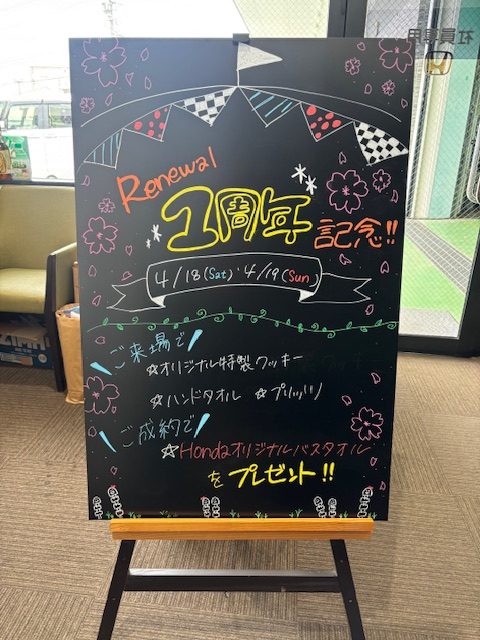 Renewal
1周年
記念!!
4/18(Sat)・4/19(Sun)
ご来場で
☆オリジナル特製クッキー
☆ハンドタオル ☆プリッツ
ご成約で
☆Hondaオリジナルバスタオル
をプレゼント!!